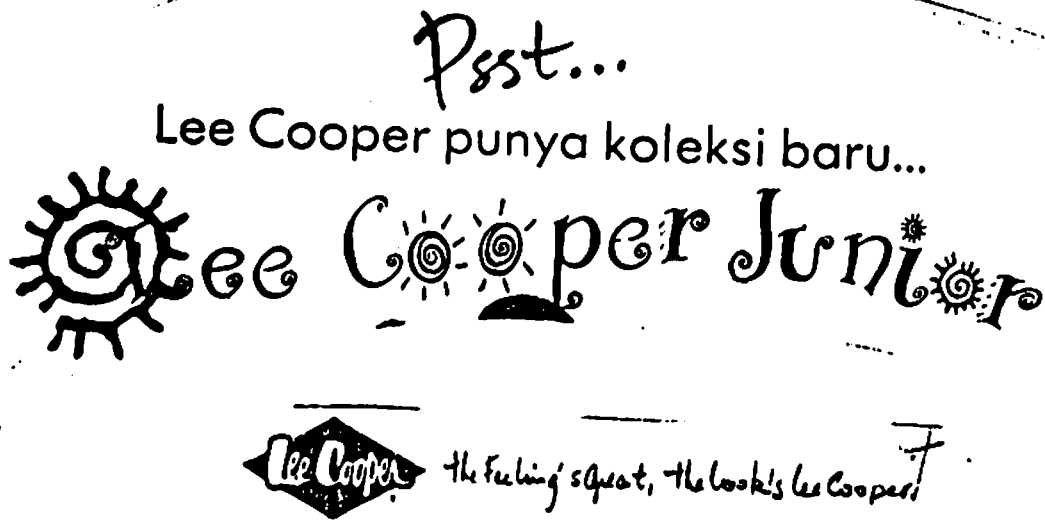 Psst...
Lee Cooper punya koleksi baru...
Lee Cooper Junior
Lee Cooper the Feeling's Great, the look's Lee Cooper!